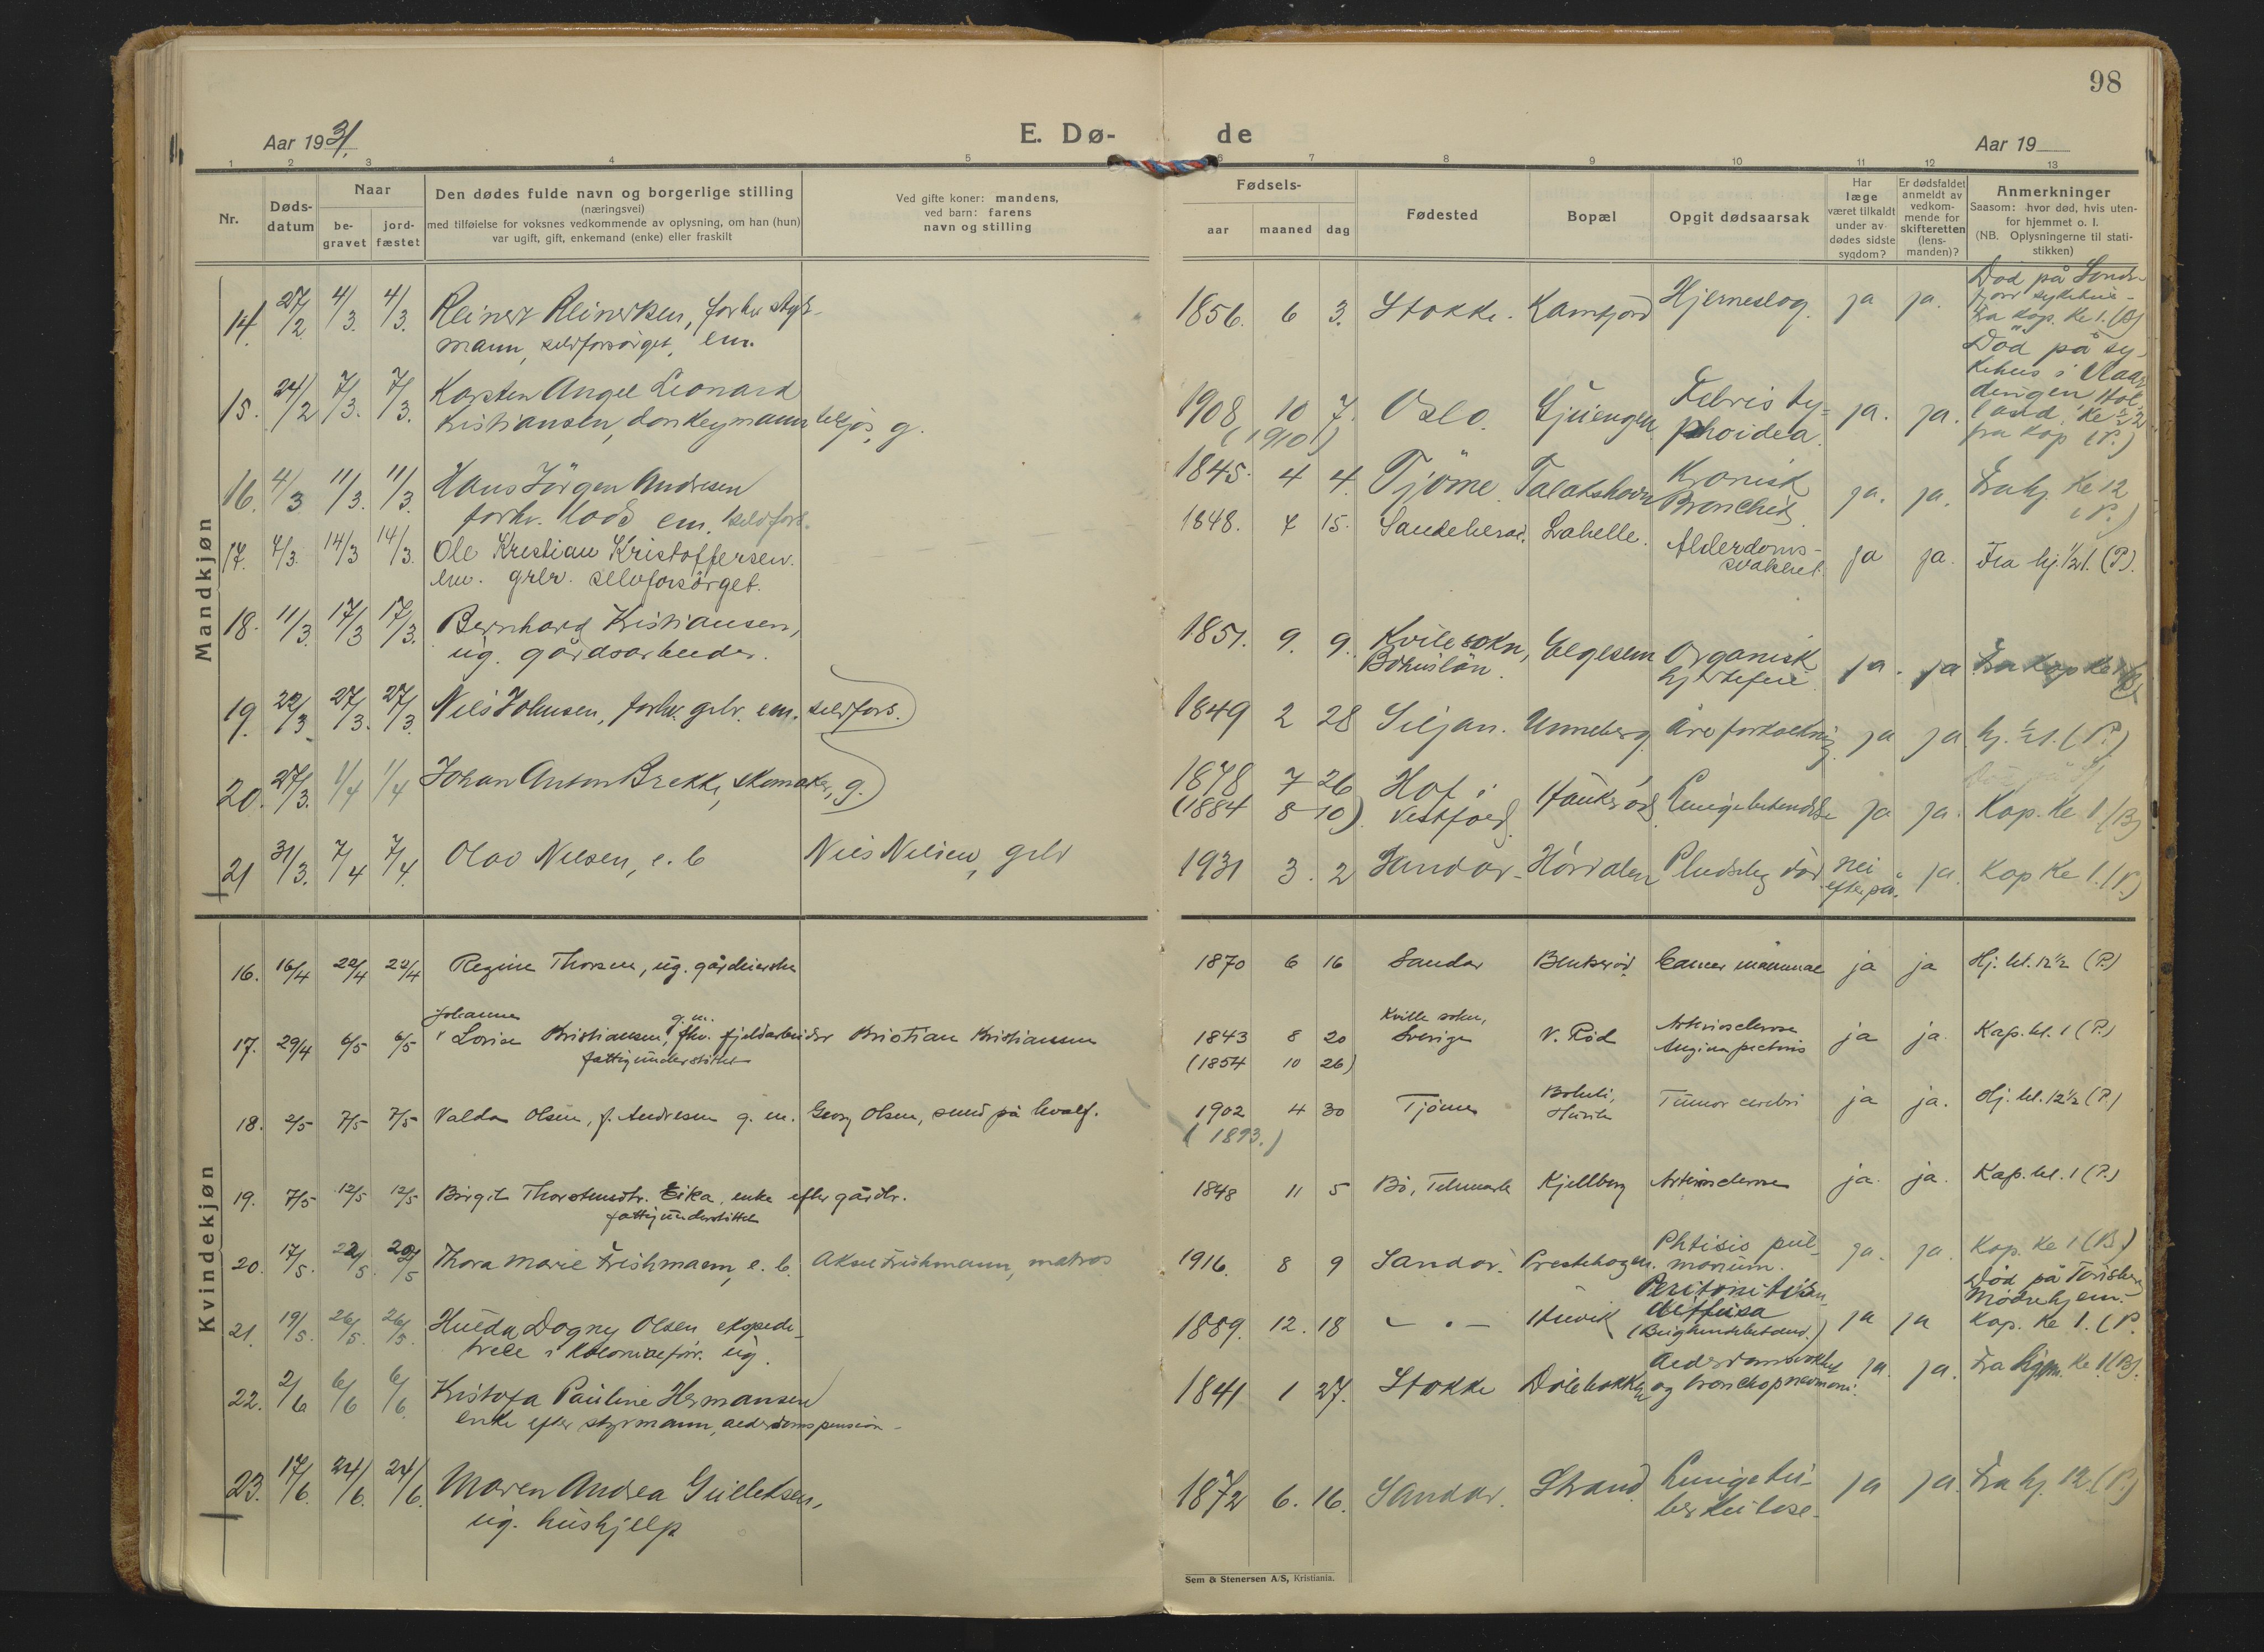 98
Aar 1931.
E. Dø-
de
Aar 19
1 2 3 4 5 6 7 8 9 10 11 12 13
Nr.
Døds-
datum
Naar
be-
gravet
jord-
fæstet
Den dødes fulde navn og borgerlige stilling
(næringsvei)
med tilføielse for voksnes vedkommende av oplysning, om han (hun)
var ugift, gift, enkemand (enke) eller fraskilt
Ved gifte koner: mandens,
ved barn: farens
navn og stilling
Fødsels-
aar maaned dag
Fødested
Bopæl
Opgit dødsaarsak
Har
læge
været tilkaldt
under av-
dødes sidste
sygdom?
Er dødsfaldet
anmeldt av
vedkom-
mende for
skifteretten
(lens-
manden)?
Anmerkninger
Saasom: hvor død, hvis uten-
for hjemmet o. l.
(NB. Oplysningerne til stati-
stikken)
Mandkjøn
14. 27/2 4/3. 4/3. Reinert Reinertsen, forhv styr-
mann, selvforsörget, em.
1856. 6 3. Stokke. Kamfjord Hjerneslag. ja ja.
Död på
sykehus
fra kap. kl 1. (B)
15. 24/2 7/3. 7/3. Karsten Angel Leonard
Kristiansen, donkeymann tilsjøs, g.
1908 10 7. Oslo. Febris ty-
(1910) phoidea. ja. ja.
Död på sy-
kehus i Vlaar
dingen, Hol
land. kl 12
fra kap (P.)
16. 4/3 11/3. 11/3. Hans Jörgen Andresen
forhv. lods em. selvfors.
1845. 4 4. Tjöme Talakshavn Kronisk
Bronchit. ja. ja. Fra hj. kl 12
(P.)
17. 7/3. 14/3 14/3. Ole Kristian Kristoffersen.
em. grbr. selvforsörget.
1848. 7 15. Sandeherad. Lahelle. Alderdoms-
svakhet. ja ja. Fra hj. 1/2 1. (P).
18. 11/3. 17/3 17/3. Bernhard Kristiansen,
ug. gårdsarbeider.
1851. 9. 9. Kville sokn,
Bohuslän. Elgesem Organisk
hjertefeil ja. ja Fra kap kl
19. 22/3 27/3. 27/3. Nils Johnsen, forhv. grbr. em. selvfors.
1849 2 28 Siljan. Unneberg. Åreforkalkning ja ja. hj. 1/2 1. (P.)
20. 27/3. 1/4 1/4 Johan Anton Brekke, skomaker, g.
1878 7 26 Hof i
(1884 8 10) Vestfold. Haukeröd Lungebetendelse ja ja. Kap. kl 1 (B)
21 31/3. 7/4 7/4. Olav Nilsen, e. b Nils Nilsen, grbr
1931 3. 2 Sandar Hördalen Pludselig död nei
efterpå. ja. Kap kl 1. (P.)
Kvindekjøn
16. 16/4 22/4 22/4 Regine Thorsen, ug. gårdeierske
1870 6 16 Sandar Bentseröd Cancer mammae ja ja Hj. kl. 12½ (P.)
17. 29/4 6/5 6/5 Johanne
Lovise Kristiansen, g.m. fhv. fjeldarbeider Kristian Kristiansen
fattigunderstöttet
1843 8 20 Kville sokn,
Sverige V. Röd Arteriosclerose
(1854 10 26) Angina pectoris ja ja. Kap. kl. 1 (P.)
18. 2/5 7/5 7/5 Valda Olsen, f. Andresen g. m. Georg Olsen, smed på hvalf.
1902 4 30 Tjöme Tumor cerebri ja ja. Hj. kl. 12½ (P.)
(1893.)
19. 7/5 12/5 12/5 Birgit Thorstensdtr. Eika, enke efter gårdbr.
fattigunderstöttet
1848 11 5 Bö, Telemark Kjellberg Arteriosclerose ja. ja. Kap. kl. 1 (P.)
20. 17/5. 22/5. 22/5 Thora Marie Frishmann, e. b. Aksel Frishmann, matros
1916. 8 9 Sandar. Prestehagen. Phtisis pul-
monum. ja. ja. Kap. kl 1 (B.)
21. 19/5. 26/5. 26/5. Hulda Dagny Olsen ekspedi-
trise i Kolonialforr. ug.
1889. 12. 18 - " - Huvik Peritonitis
diffusa
(Bughindebetend.) ja ja
Död på
Mödrehjem.
Kap. kl 1. (P.
22. 2/6 6/6 6/6. Kristofa Pauline Hermansen
enke efter styrmann, alderdomspension
1841 1 27. Stokke Dölebakken Alderdomssvakhet
og bronchopneumoni. ja. ja. Fra hjem. kl 1 (B).
23. 17/6. 24/6. 24/6. Maren Andrea Gulliksen,
ug. hushjelp
1872 6. 16. Sandar. Strand. Lungetu-
berkulose. ja ja. Fra hj. 12. (P.)
Sem & Stenersen A/S, Kristiania.